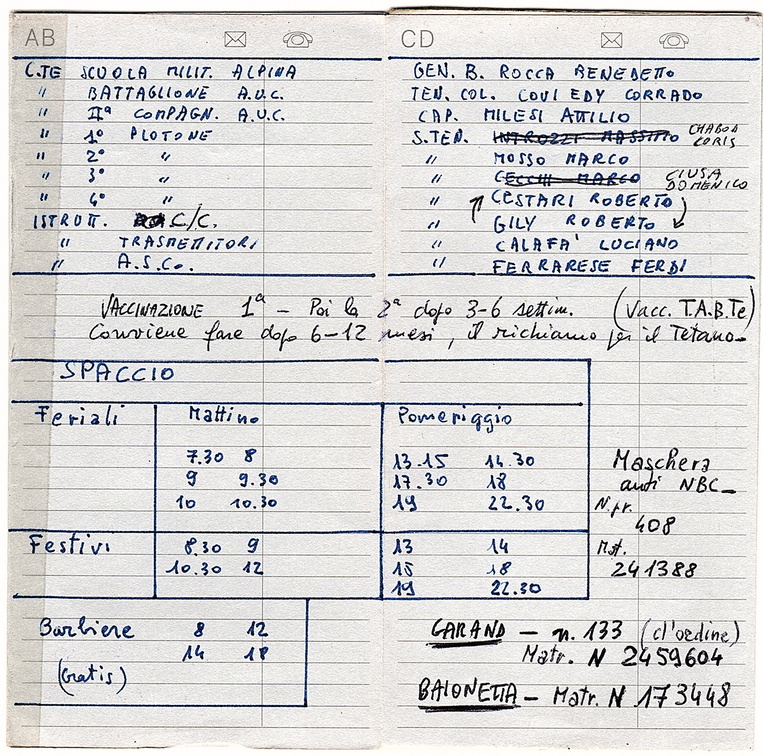 AB CD
C.TE SCUOLA MILIT. ALPINA GEN. B. ROCCA BENEDETTO
" BATTAGLIONE A.U.C. TEN. COL. COVI EDY CORRADO
" IIª COMPAGN. A.U.C. CAP. MILESI ATTILIO
" 1° PLOTONE S.TEN. INTROZZI MASSIMO CHABOD CORIS
" 2° " " MOSSO MARCO
" 3° " " CECCHI MARCO CIUSA DOMENICO
" 4° " " CESTARI ROBERTO
ISTRUTT. C/C. " GILY ROBERTO
" TRASMETTITORI " CALAFA' LUCIANO
" A.S.Co. " FERRARESE FERDI
VACCINAZIONE 1ª - Poi la 2ª dopo 3-6 settim. (Vacc. T.A.B.Te)
Conviene fare dopo 6-12 mesi, il richiamo per il Tetano.
SPACCIO
Feriali Mattino Pomeriggio
7.30 8 13.15 14.30
9 9.30 17.30 18
10 10.30 19 22.30
Maschera
anti NBC-
N. pr.
408
Mat.
241388
Festivi 8.30 9 13 14
10.30 12 15 18
19 22.30
Barbiere 8 12
14 18
(Gratis)
GARAND - n. 133 (d'ordine)
Matr. N 2459604
BAIONETTA - Matr. N 173448